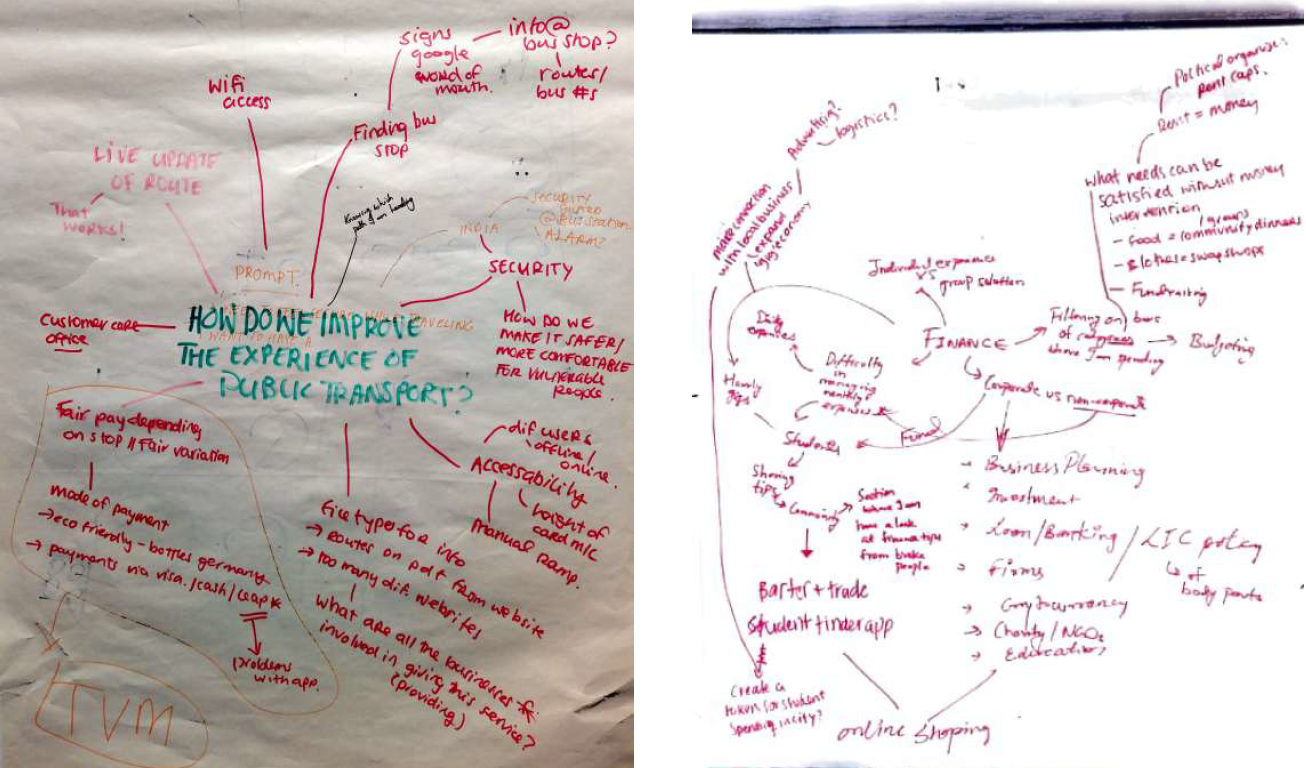 signs
google
word of
mouth.
info@
bus stop?
routes/
bus #s
Wifi
access
Finding bus
stop
LIVE UPDATE
OF ROUTE
That
works!
Knowing which
SECURITY
@ BUS STATION
ALARM?
INDIA
SECURITY
PROMPT
HOW DO WE IMPROVE
THE EXPERIENCE OF
PUBLIC TRANSPORT?
TRAVELING
I WANT TO HAVE A
Customer care
office
HOW DO WE
MAKE IT SAFER/
MORE COMFORTABLE
FOR VULNERABLE
PEOPLE
Fair pay depending
on stop // Fair variation
mode of payment
→ eco friendly - bottles germany
→ payments via visa./cash/leap
problems
with app.
TVM
dif users
offline/
online.
Accessability
height of
card m/c
manual
ramp.
file type for info
→ Routes on pdf from website
→ too many dif. websites
what are all the businesses
involved in giving this service?
(providing)
Political organise:
Rent caps.
Rent = money
what needs can be
satisfied without money
intervention
- food = community dinners
/groups
- clothes = swap shops
- Fundraiting
Advertising?
logistics?
make connection
with local business
(expand
gig economy
Individual expenses
vs
group solution
FINANCE
Filtering on bars
of categories
where I am spending
Budgeting
Daily
expenses
Difficulty
in
managing
monthly
expenses
Hourly
gigs
Corporate vs non-corporate
Funnel
Students
Sharing
tips
Section
where I can
have a look
at finance tips
from broke
people
Business Planning
Investment
Loan/Banking / LIC policy
of
body parts
Firms
Cryptocurrency
Charity/NGOs
Education
Barter + trade
Student tinder app
Create a
token for student
spending in city?
online Shoping